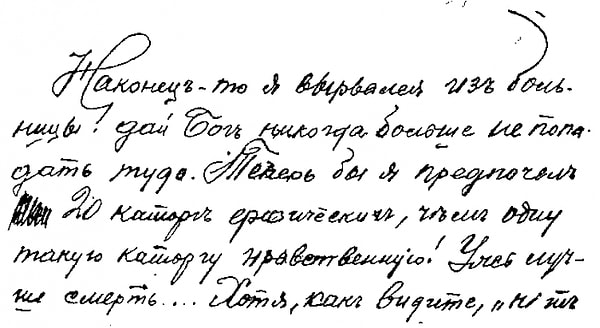 Наконецъ-то я вырвался изъ боль-
ницы! дай Богъ никогда больше не попа-
дать туда. Теперь бы я предпочелъ
20 каторгъ физическихъ, чѣмъ одну
такую каторгу нравственную! Ужъ луч-
ше смерть... Хотя, какъ видите, „нѣтъ